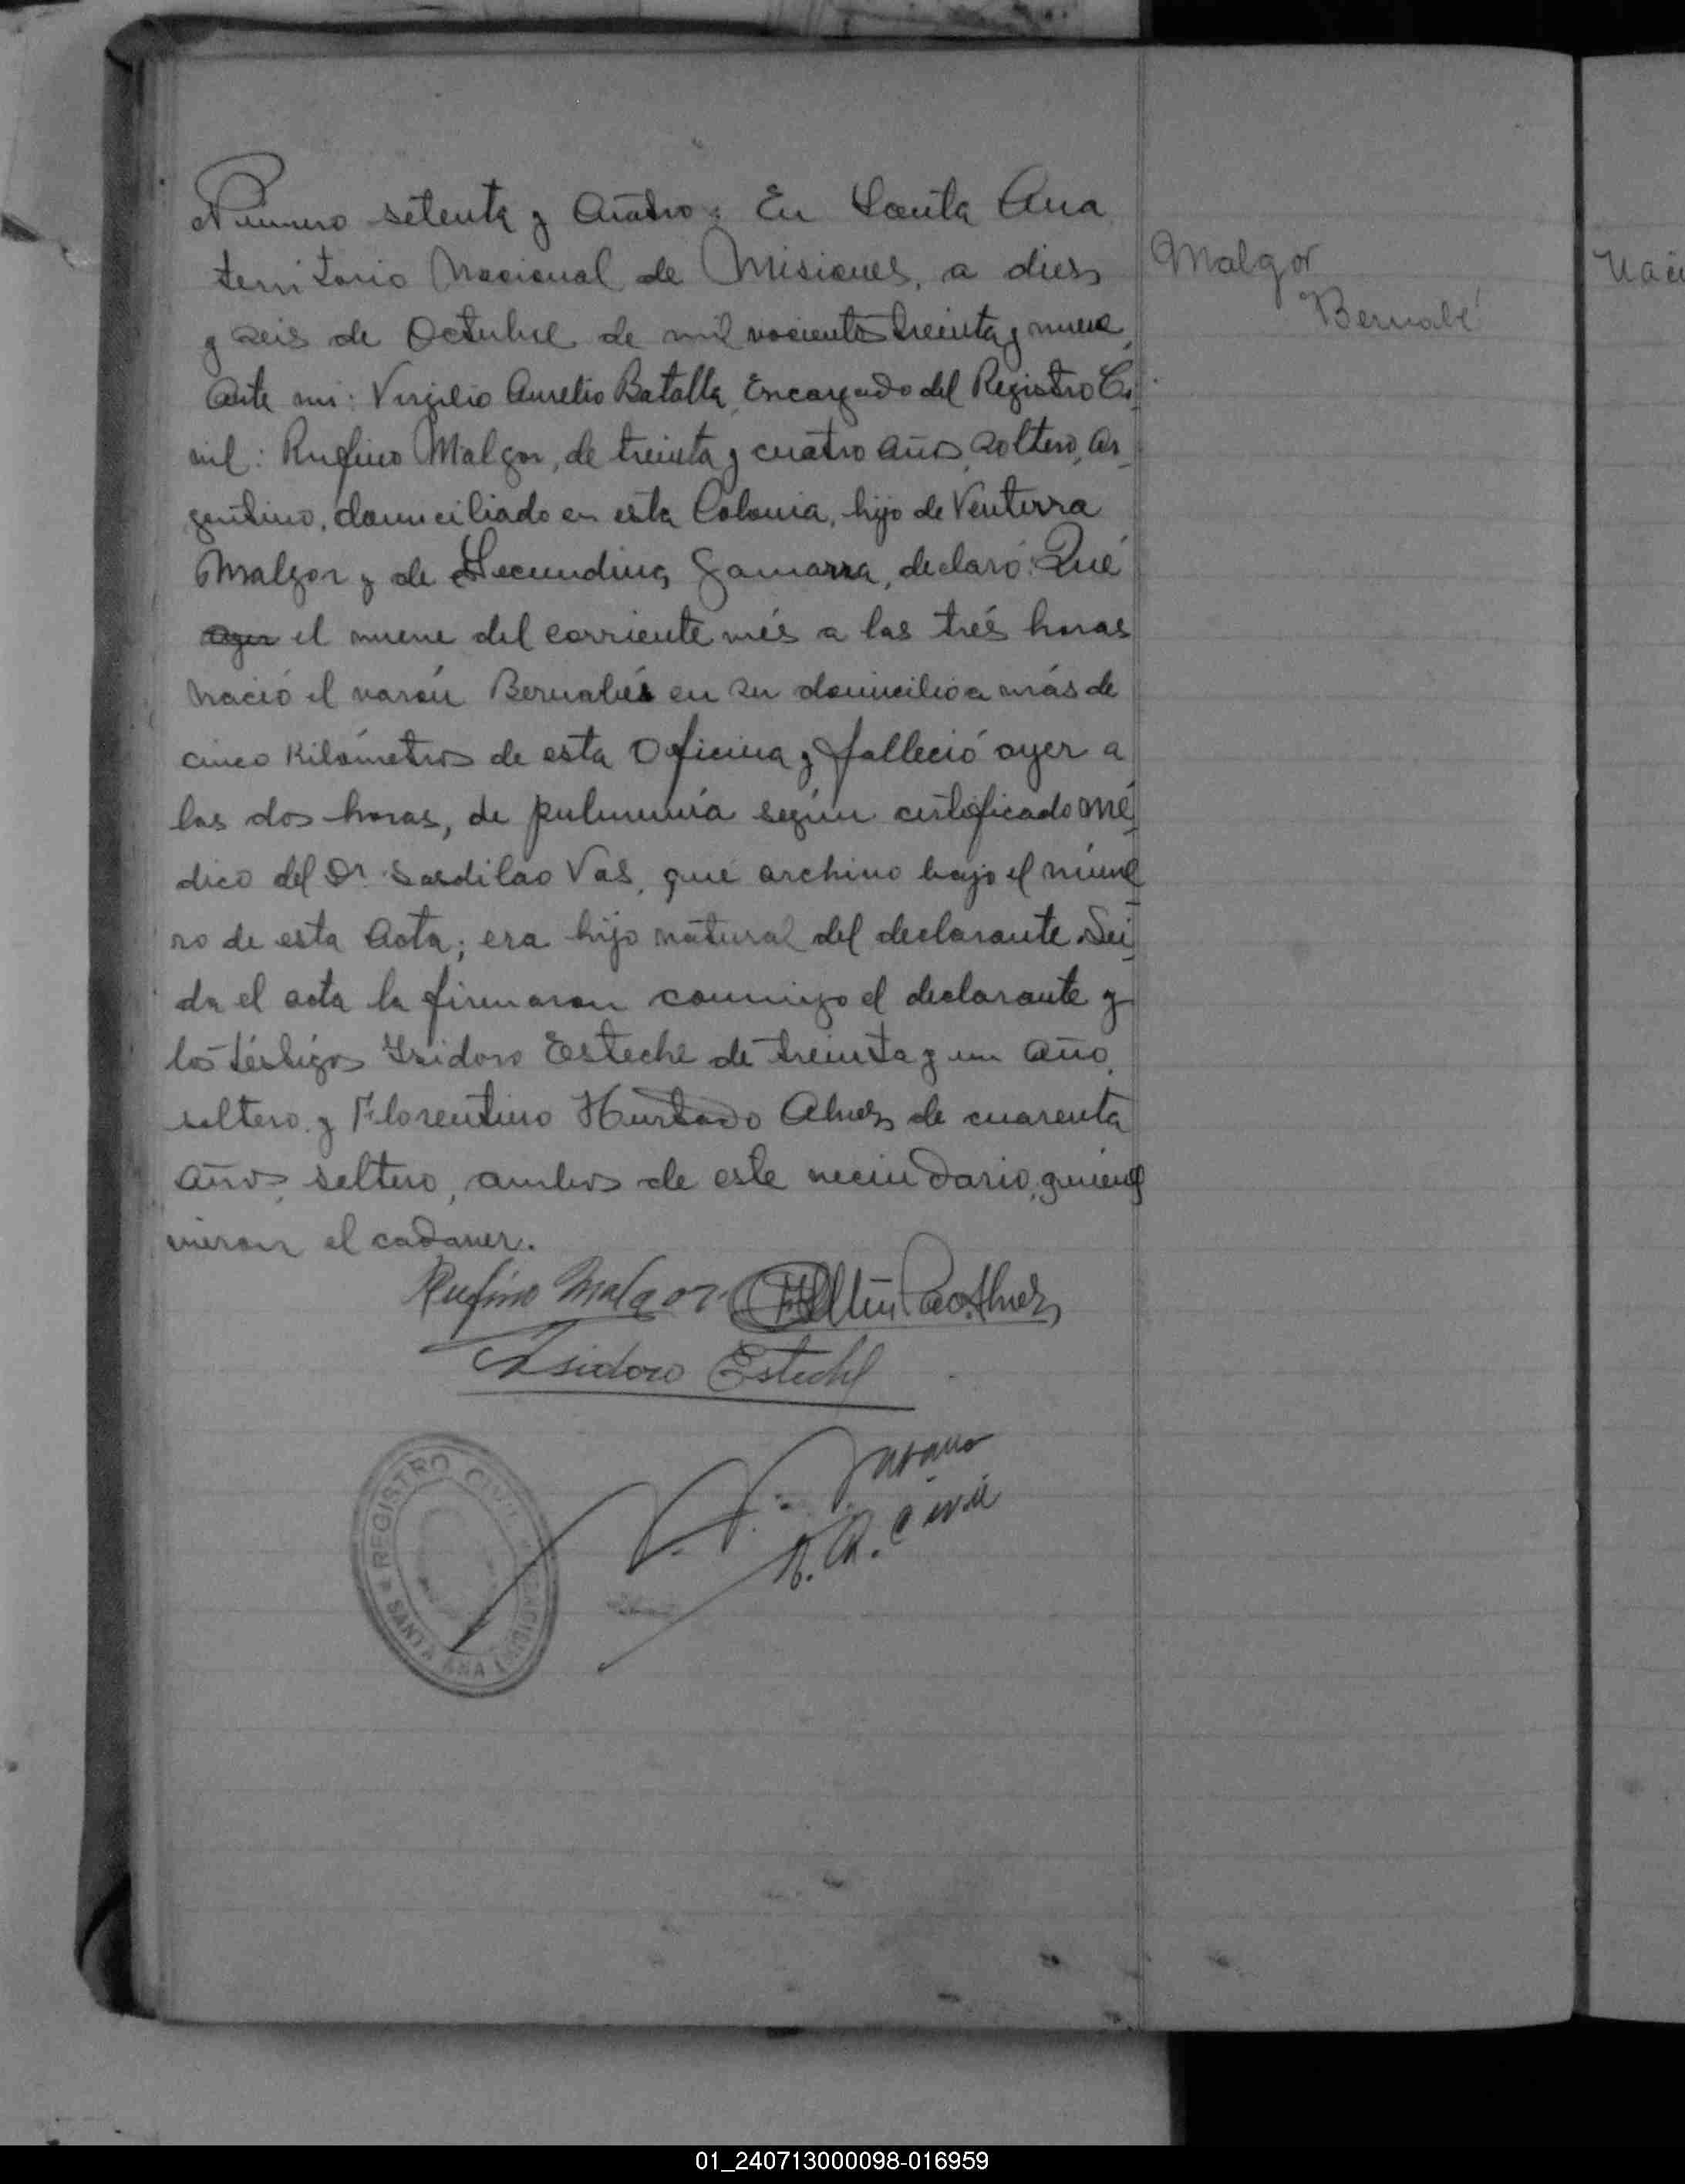 Número setenta y cuatro: En Santa Ana
territorio Nacional de Misiones, a dies
y seis de Octubre de mil nocientos treinta y nueve,
Ante mi: Virgilio Aurelio Batalla, Encargado del Registro Ci
vil: Rufino Malgor, de treinta y cuatro años, soltero, ar
gentino, domiciliado en esta Colonia, hijo de Venturra
Malgor y de Secundina Gamarra, declaró: Qué
ayer el nueve del corriente més a las trés horas
nació el varón Bernabés en su domicilio a más de
cinco Kilómetros de esta Oficina y falleció ayer a
las dos horas, de pulmunía según certificado mé
dico del Dr. Vas, que archivo bajo el núme
ro de esta Acta; era hijo natural del declarante. Lei
da el acta la firmaron conmigo el declarante y
los téstigos Isidoro Esteche de treinta y un año,
soltero y Florentino Hurtado Alves de cuarenta
años, soltero, ambos de este vecindario, quienes
vieron el cadaver.
Malgor
Bernabé
Rufino Malgor
Isidoro Esteche
R. Civil
REGISTRO CIVIL
SANTA ANA (MISIONES)
01_240713000098-016959